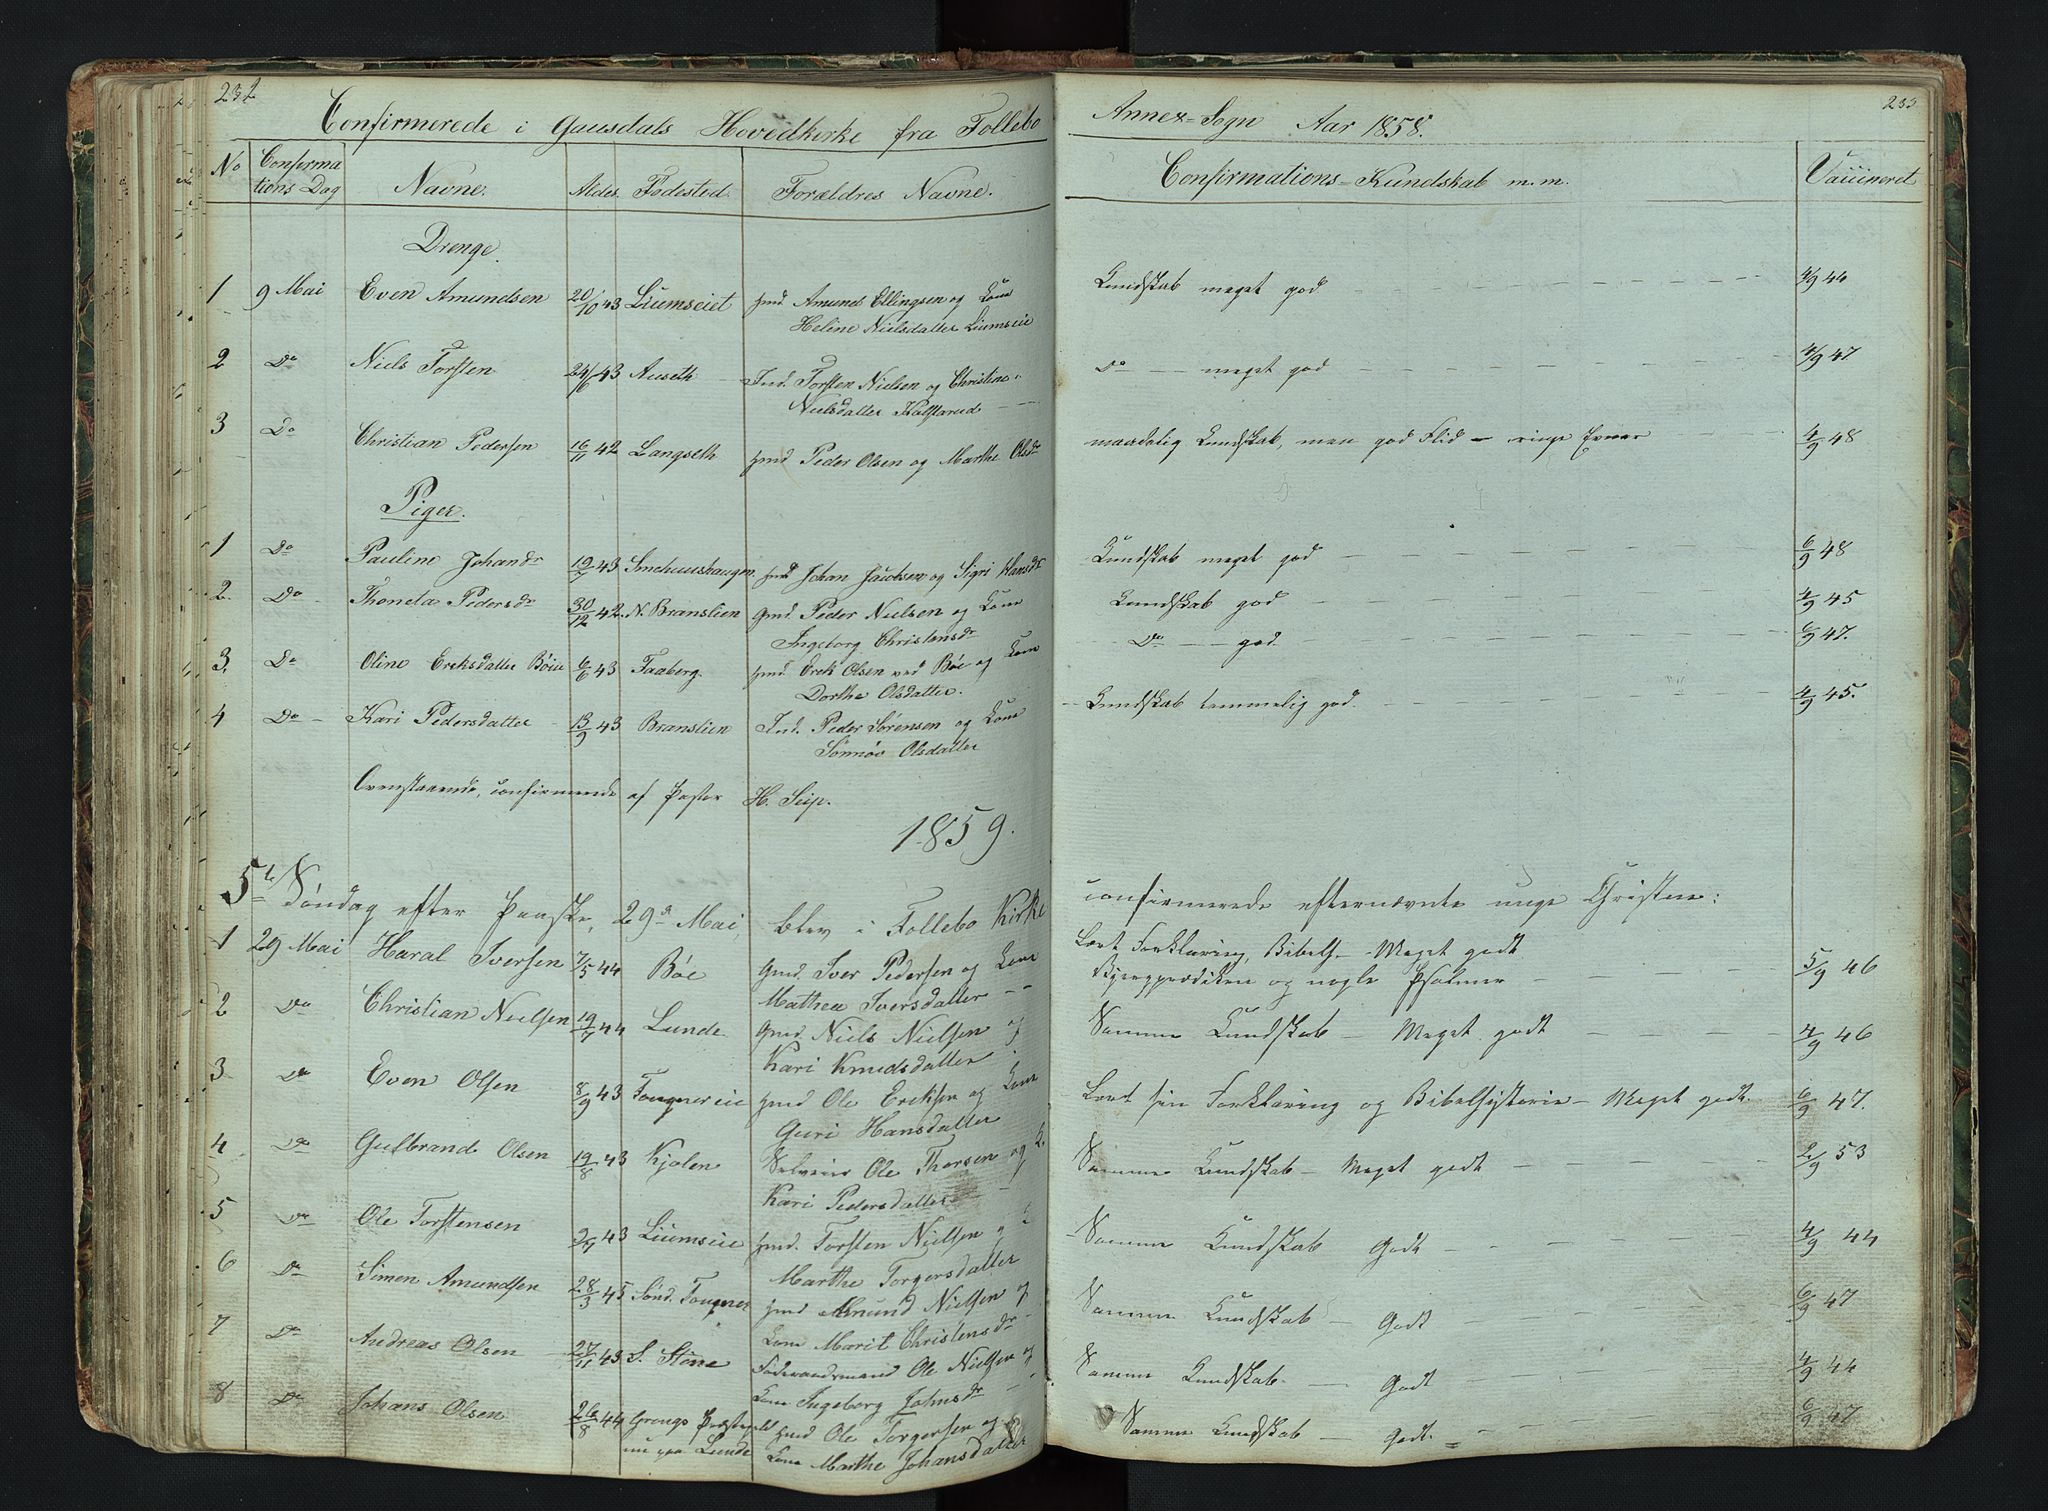 232
Confirmerede i Gausdals Hovedkirke fra Follebo Annex=Sogn Aar 1858.
233
No Confirmations Dag Navne. Alder. Fødested. Forældres Navne. Confirmations=Kundskab m.m. Vaccineret
Drenge.
1 9 Mai Even Amundsen 20/10 43 Liumseiet hmd Amund Ellingsen og Kone Kundskab meget god 4/9 44
Heline Nielsdatter Liumseie
2 Do Niels Torsten 24/6 43 Auseth Ind. Torsten Nielsen og Christine Do meget god 4/9 47
Nielsdatter Kalstarud
3 Do Christian Pedersen 16/11 42 Langseth hmd Peder Olsen og Marthe Olsdr maadelig Kundskab, men god Flid - ringe Evner 4/9 48
Piger.
1 Do Pauline Johandr 19/7 43 Smehuushaugen hmd Johan Jacobsen og Sigri Hansdr Kundskab meget god 6/9 48
2. Do Thoneta Pedersdr 30/12 42 N. Branslien Gmd. Peder Nielsen og Kone Kundskab god 4/9 45
Ingeborg Christensdr
3. Do Oline Eriksdatter Böie 6/6 43 Faaberg. hmd. Erik Olsen ved Böe og Kone Do god. 6/9 47.
Dorthe Olsdatter.
4 Do Kari Pedersdatter 13/9 43 Branslien Ind. Peder Sörensen og Kone Kundskab temmelig god. 4/9 45.
Sönnöv Olsdatter
Ovenstaaende, confirmerede af Pastor H. Seip.
1859.
5te Söndag efter Paaske, 29de Mai, blev i Follebo Kirke confirmerede efternævnte unge Christne:
1 29 Mai Haral Iversen 7/5 44 Böe Gmd. Iver Pedersen og Kone Lært Forklaring, Bibelh. - Meget godt 5/9 46
Mathea Iversdatter Bjergprædiken og nogle Psalmer
2 Do Christian Nielsen 19/7 44 Lunde. Gmd. Niels Nielsen og Samme Kundskab - Meget godt 4/9 46
Kari Knudsdatter
3 Do Even Olsen 8/9 43 Fougnereie hmd Ole Eriksen og Kone Lært sin Forklaring og Bibelhistorie - Meget godt 6/9 47.
Guri Hansdatter
4 Do Gulbrand Olsen 19/8 43 Kjolen Selveier Ole Thorsen og K. Samme Kundskab - Meget godt 2/9 53
Kari Pedersdatter
5 Do Ole Torstensen 43 Liumseie hmd. Torsten Nielsen Samme Kundskab Godt 4/9 44
Marthe Torgersdatter
6 Do Simen Amundsen 28/3 45 Sönd. Fougner hmd Amund Nielsen og Samme Kundskab - Godt 6/9 47
Kone Marit Christensdr
7 Do Andreas Olsen 27/11 43 S. Stöne Föderaadsmand Ole Nielsen og Samme Kundskab - Godt 4/9 44
Kone Ingeborg Johnsdr
8 Do Johans Olsen 26/8 44 Grongs Præstegield hmd Ole Torgersen og Samme Kundskab - Godt. 6/9 47
nu paa Lunde Kone Marthe Johansdatter